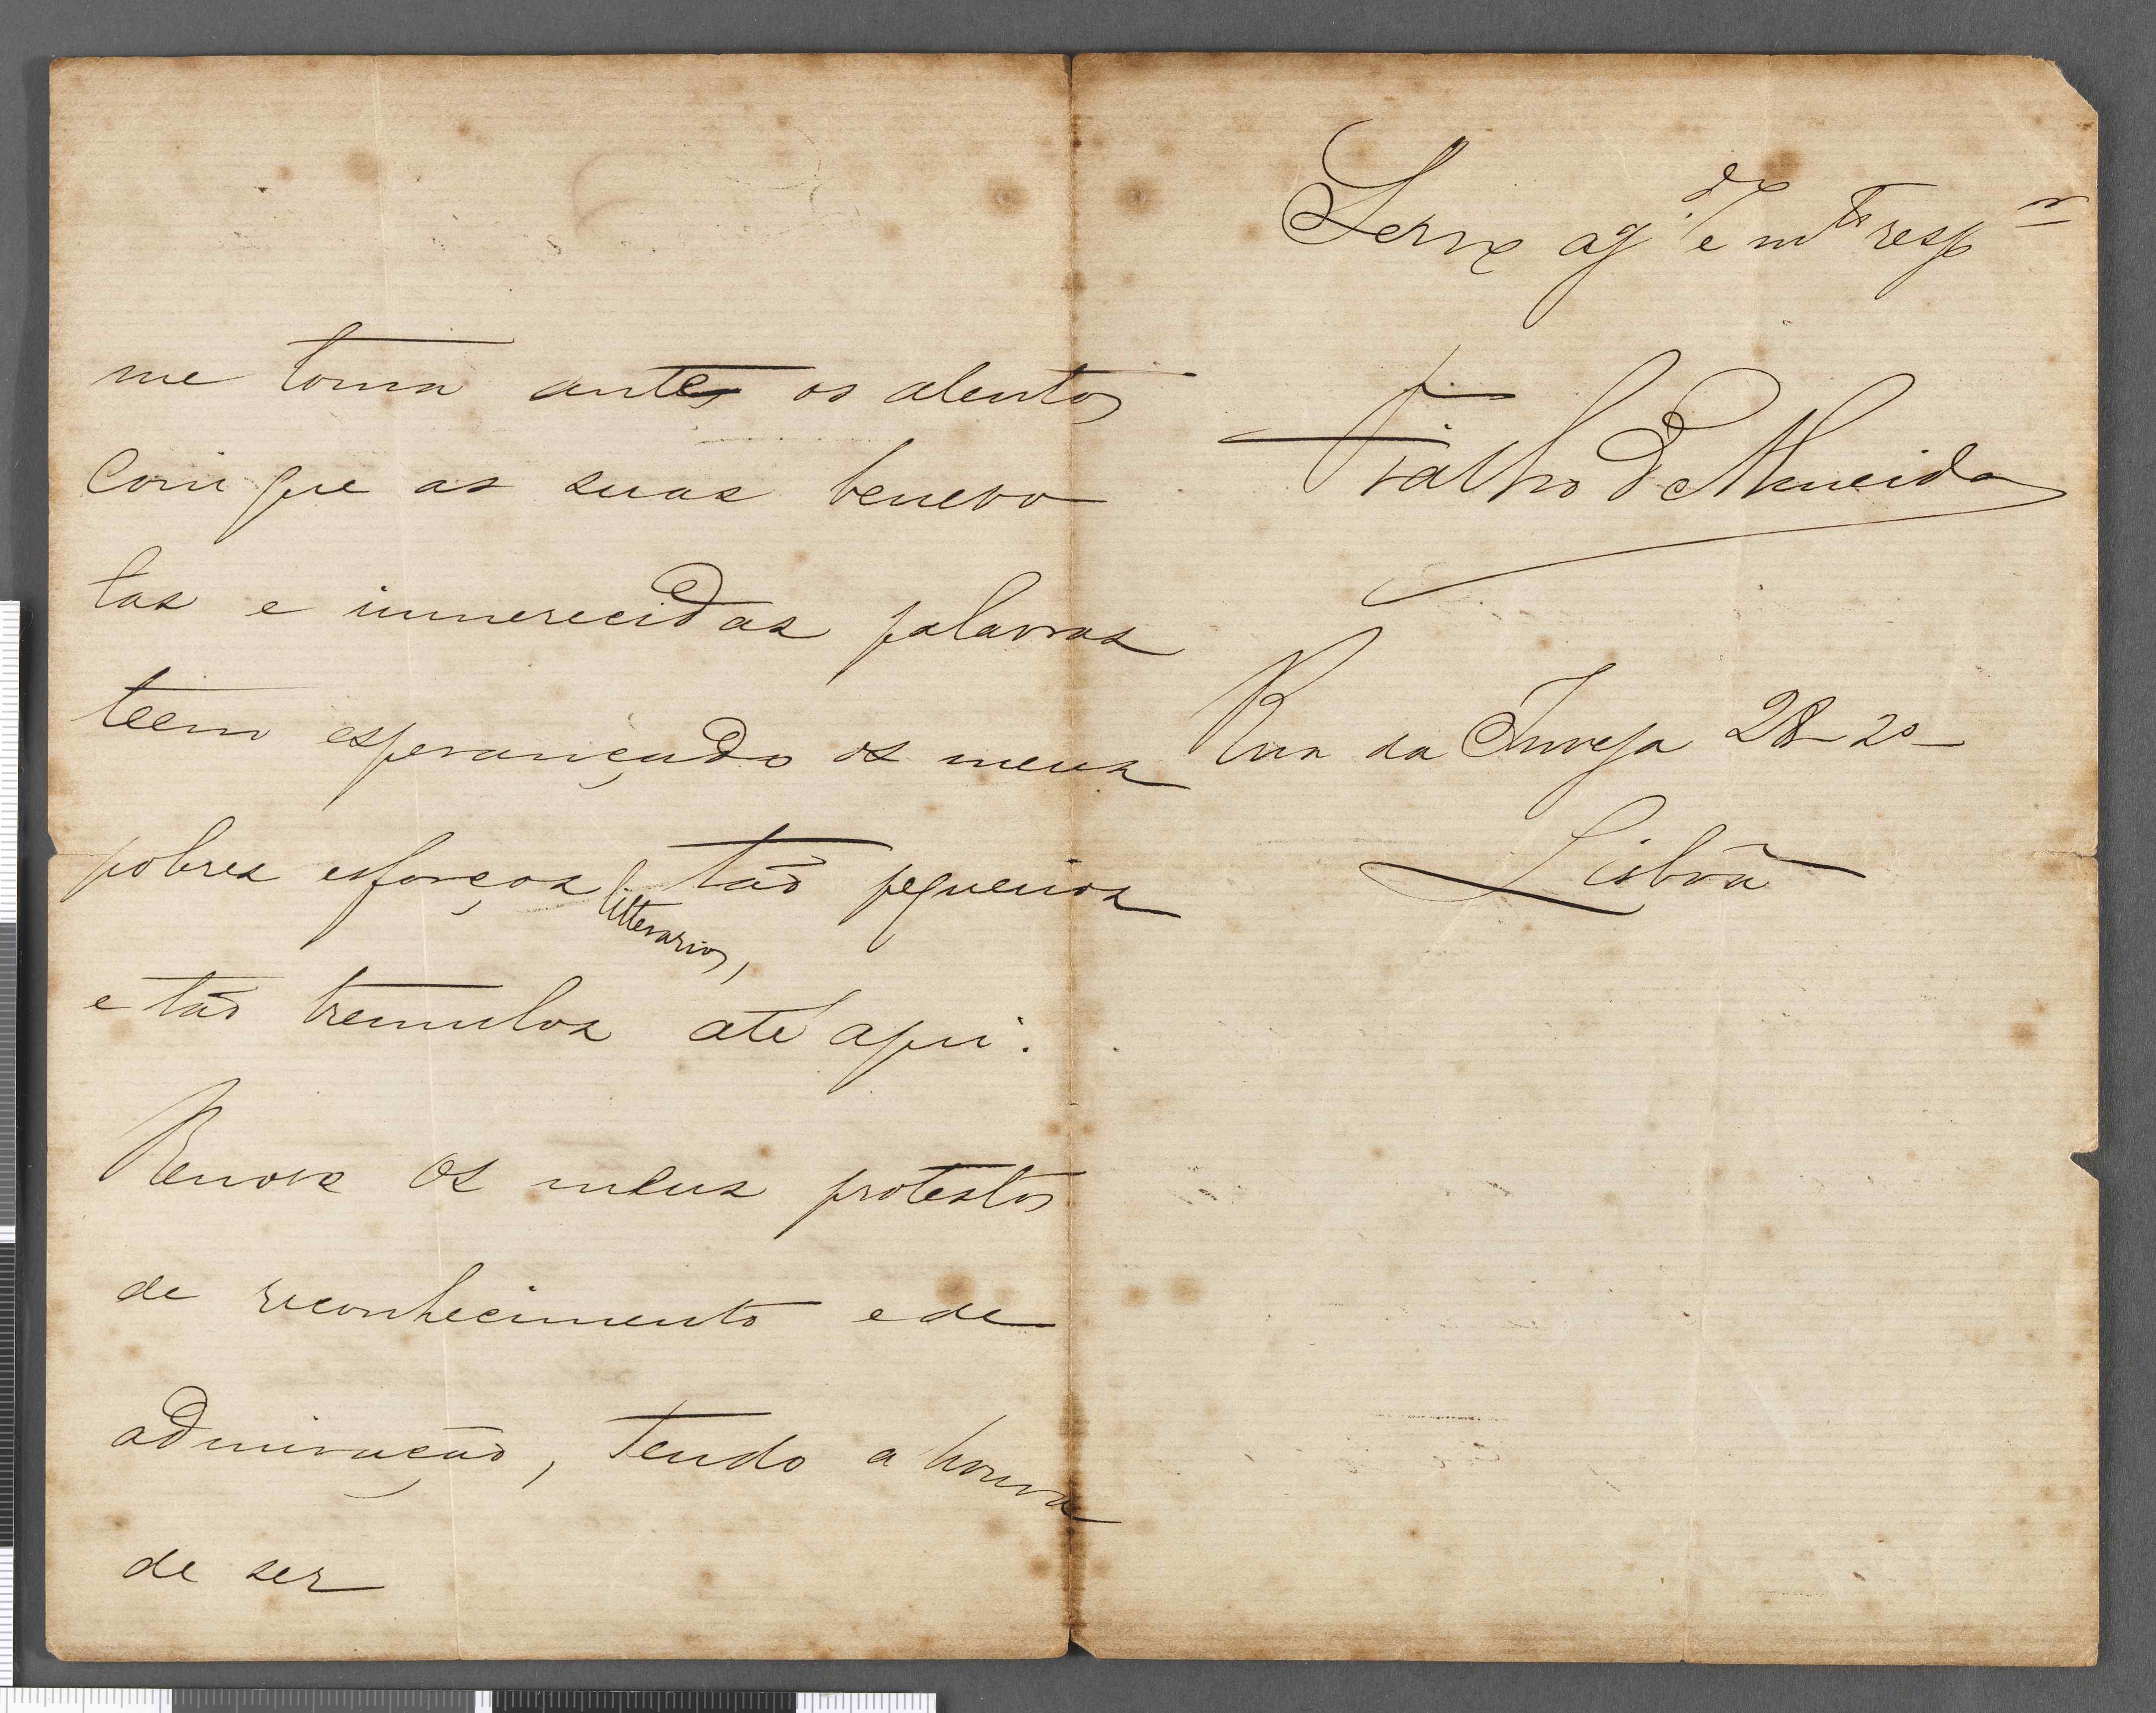 me toma antes os alentos
com que as suas benevo
las e immerecidas palavras
teem esperançado os meus
pobres esforços litterarios, tão pequenos
e tão tremulos até aqui.
Renova os meus protestos
de reconhecimento e de
admiração, tendo a honra
de ser
Servo agdo e mto respor
Fialho d'Almeida
Rua da Inveja 28-2º-
Lisboa